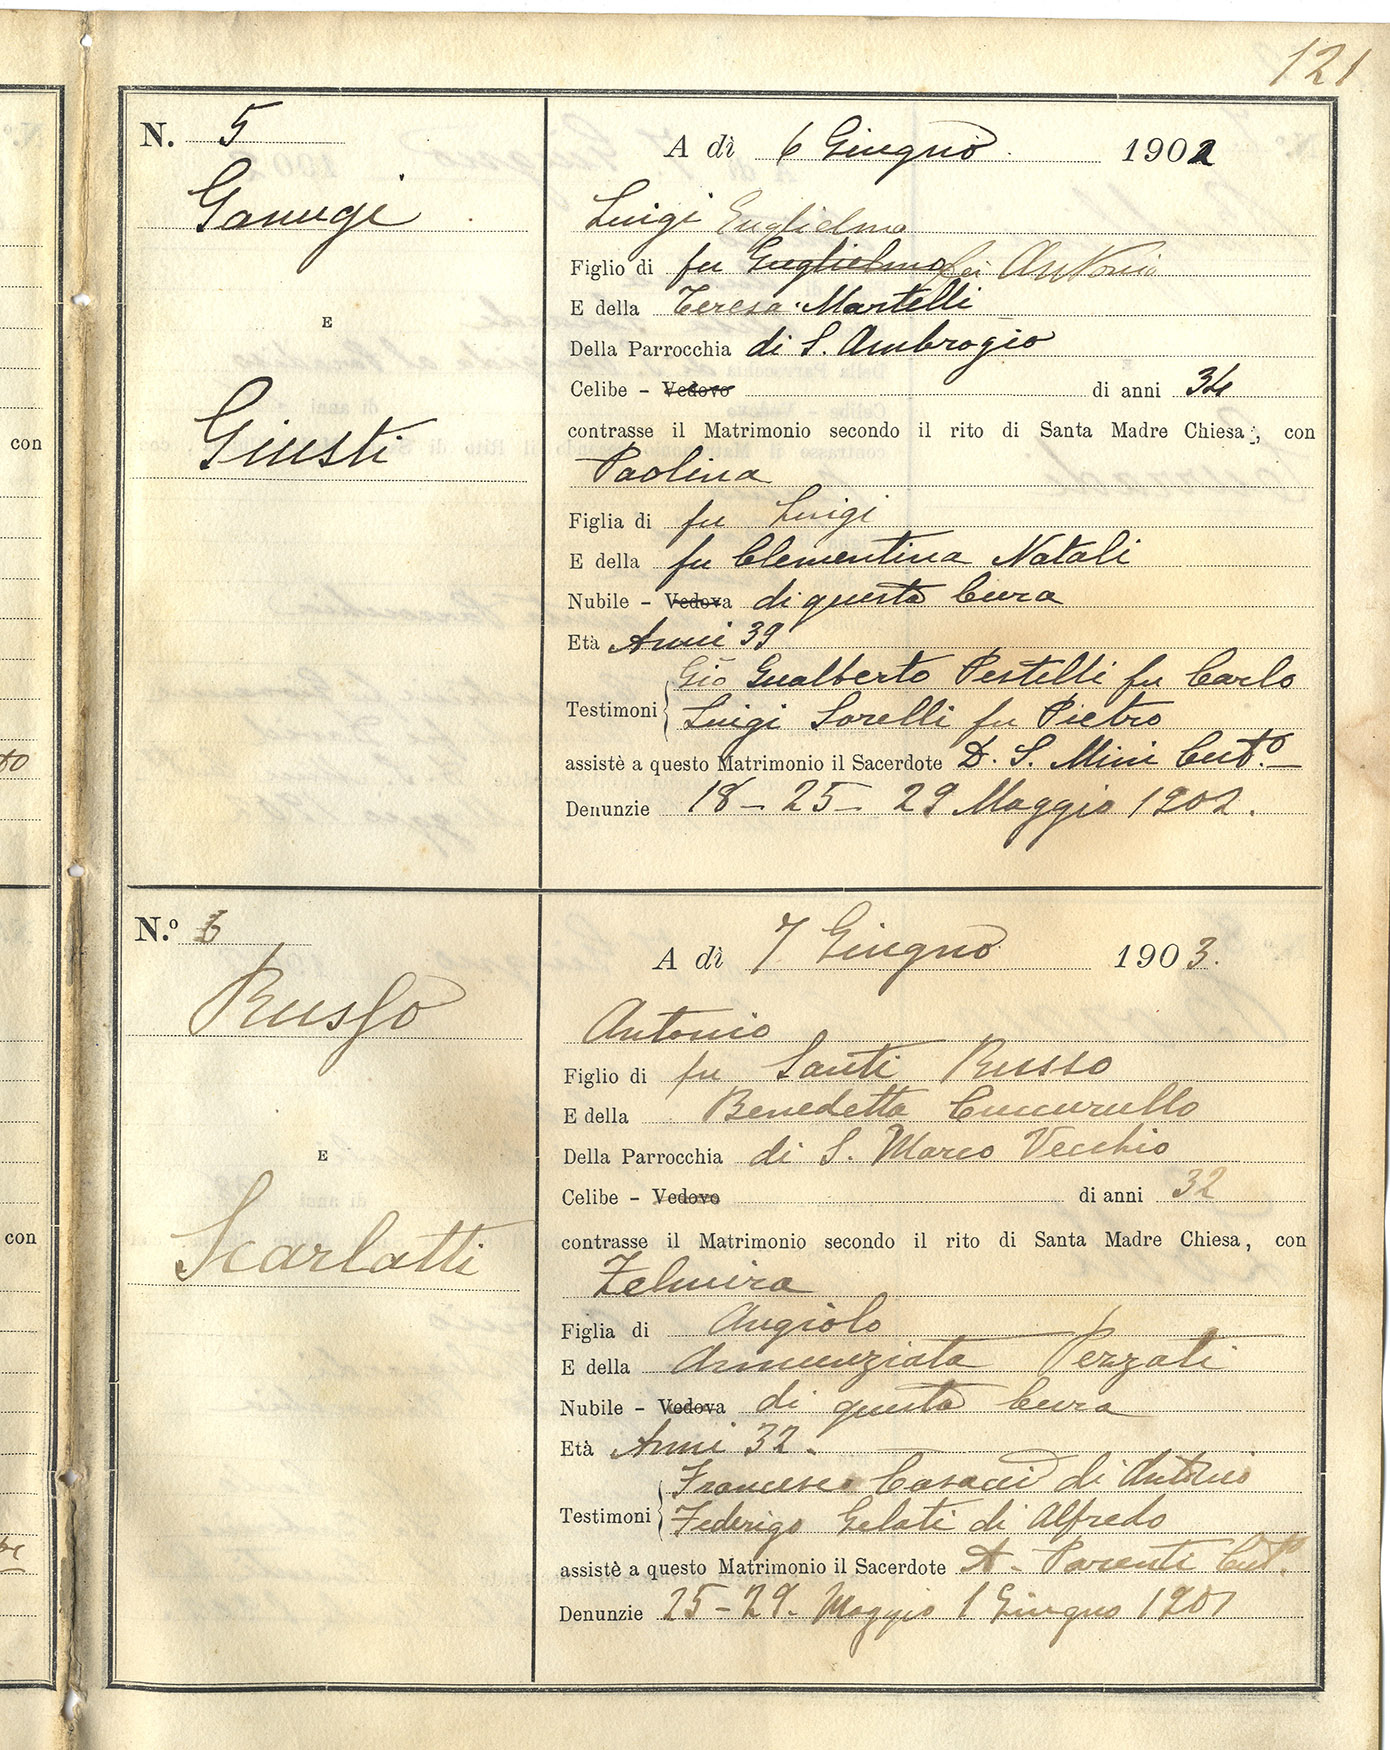 121
N. 5
A dì 6 Giugno 1902
Ganugi
Luigi Guglielmo
Figlio di fu Guglielmo di Antonio
E
E della Teresa Martelli
Della Parrocchia di S. Ambrogio
Celibe – Vedovo di anni 34
Giusti
contrasse il Matrimonio secondo il rito di Santa Madre Chiesa, con
Paolina
Figlia di fu Luigi
E della fu Clementina Natali
Nubile – Vedova di questa Cura
Età Anni 39
Gio Gualberto Pestelli fu Carlo
Testimoni
Luigi Sorelli fu Pietro
assistè a questo Matrimonio il Sacerdote D. S. Mini Cut.º
Denunzie 18 – 25 – 29 Maggio 1902.
N.º 6
A dì 7 Giugno 1903.
Russo
Antonio
Figlio di fu Santi Russo
E della Benedetta Cuccurullo
E
Della Parrocchia di S. Marco Vecchio
Celibe – Vedovo di anni 32
Scarlatti
contrasse il Matrimonio secondo il rito di Santa Madre Chiesa, con
Zelmira
Figlia di Angiolo
E della Annunziata Pezzati
Nubile – Vedova di questa Cura
Età Anni 32.
Francesco Casacci di Antonio
Testimoni
Federigo Gelati di Alfredo
assistè a questo Matrimonio il Sacerdote A. Parenti Cut.º
Denunzie 25 – 29. Maggio 1 Giugno 1901
con
con